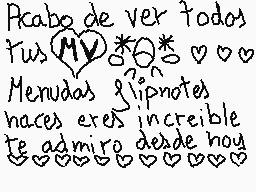 Acabo de ver todos
tus MV
Menudas flipnotes
haces eres increible
te admiro desde hoy